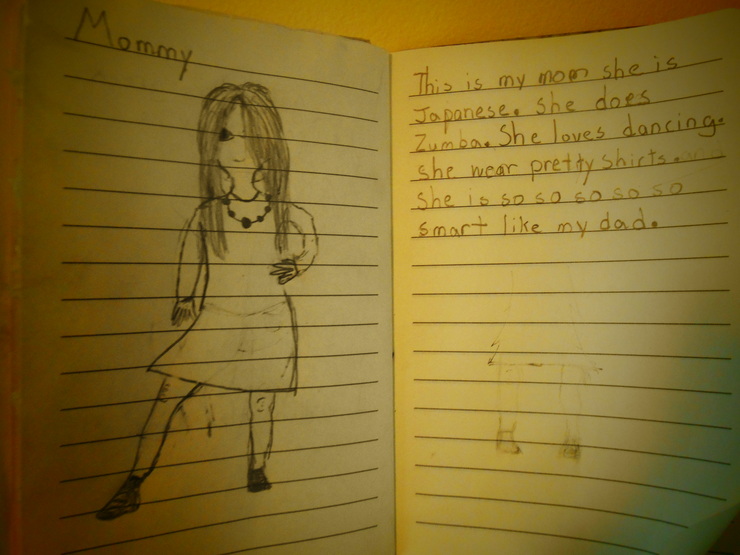 Mommy
This is my mom she is
Japanese. She does
Zumba. She loves dancing.
she wear pretty shirts.
She is so so so so so
smart like my dad.